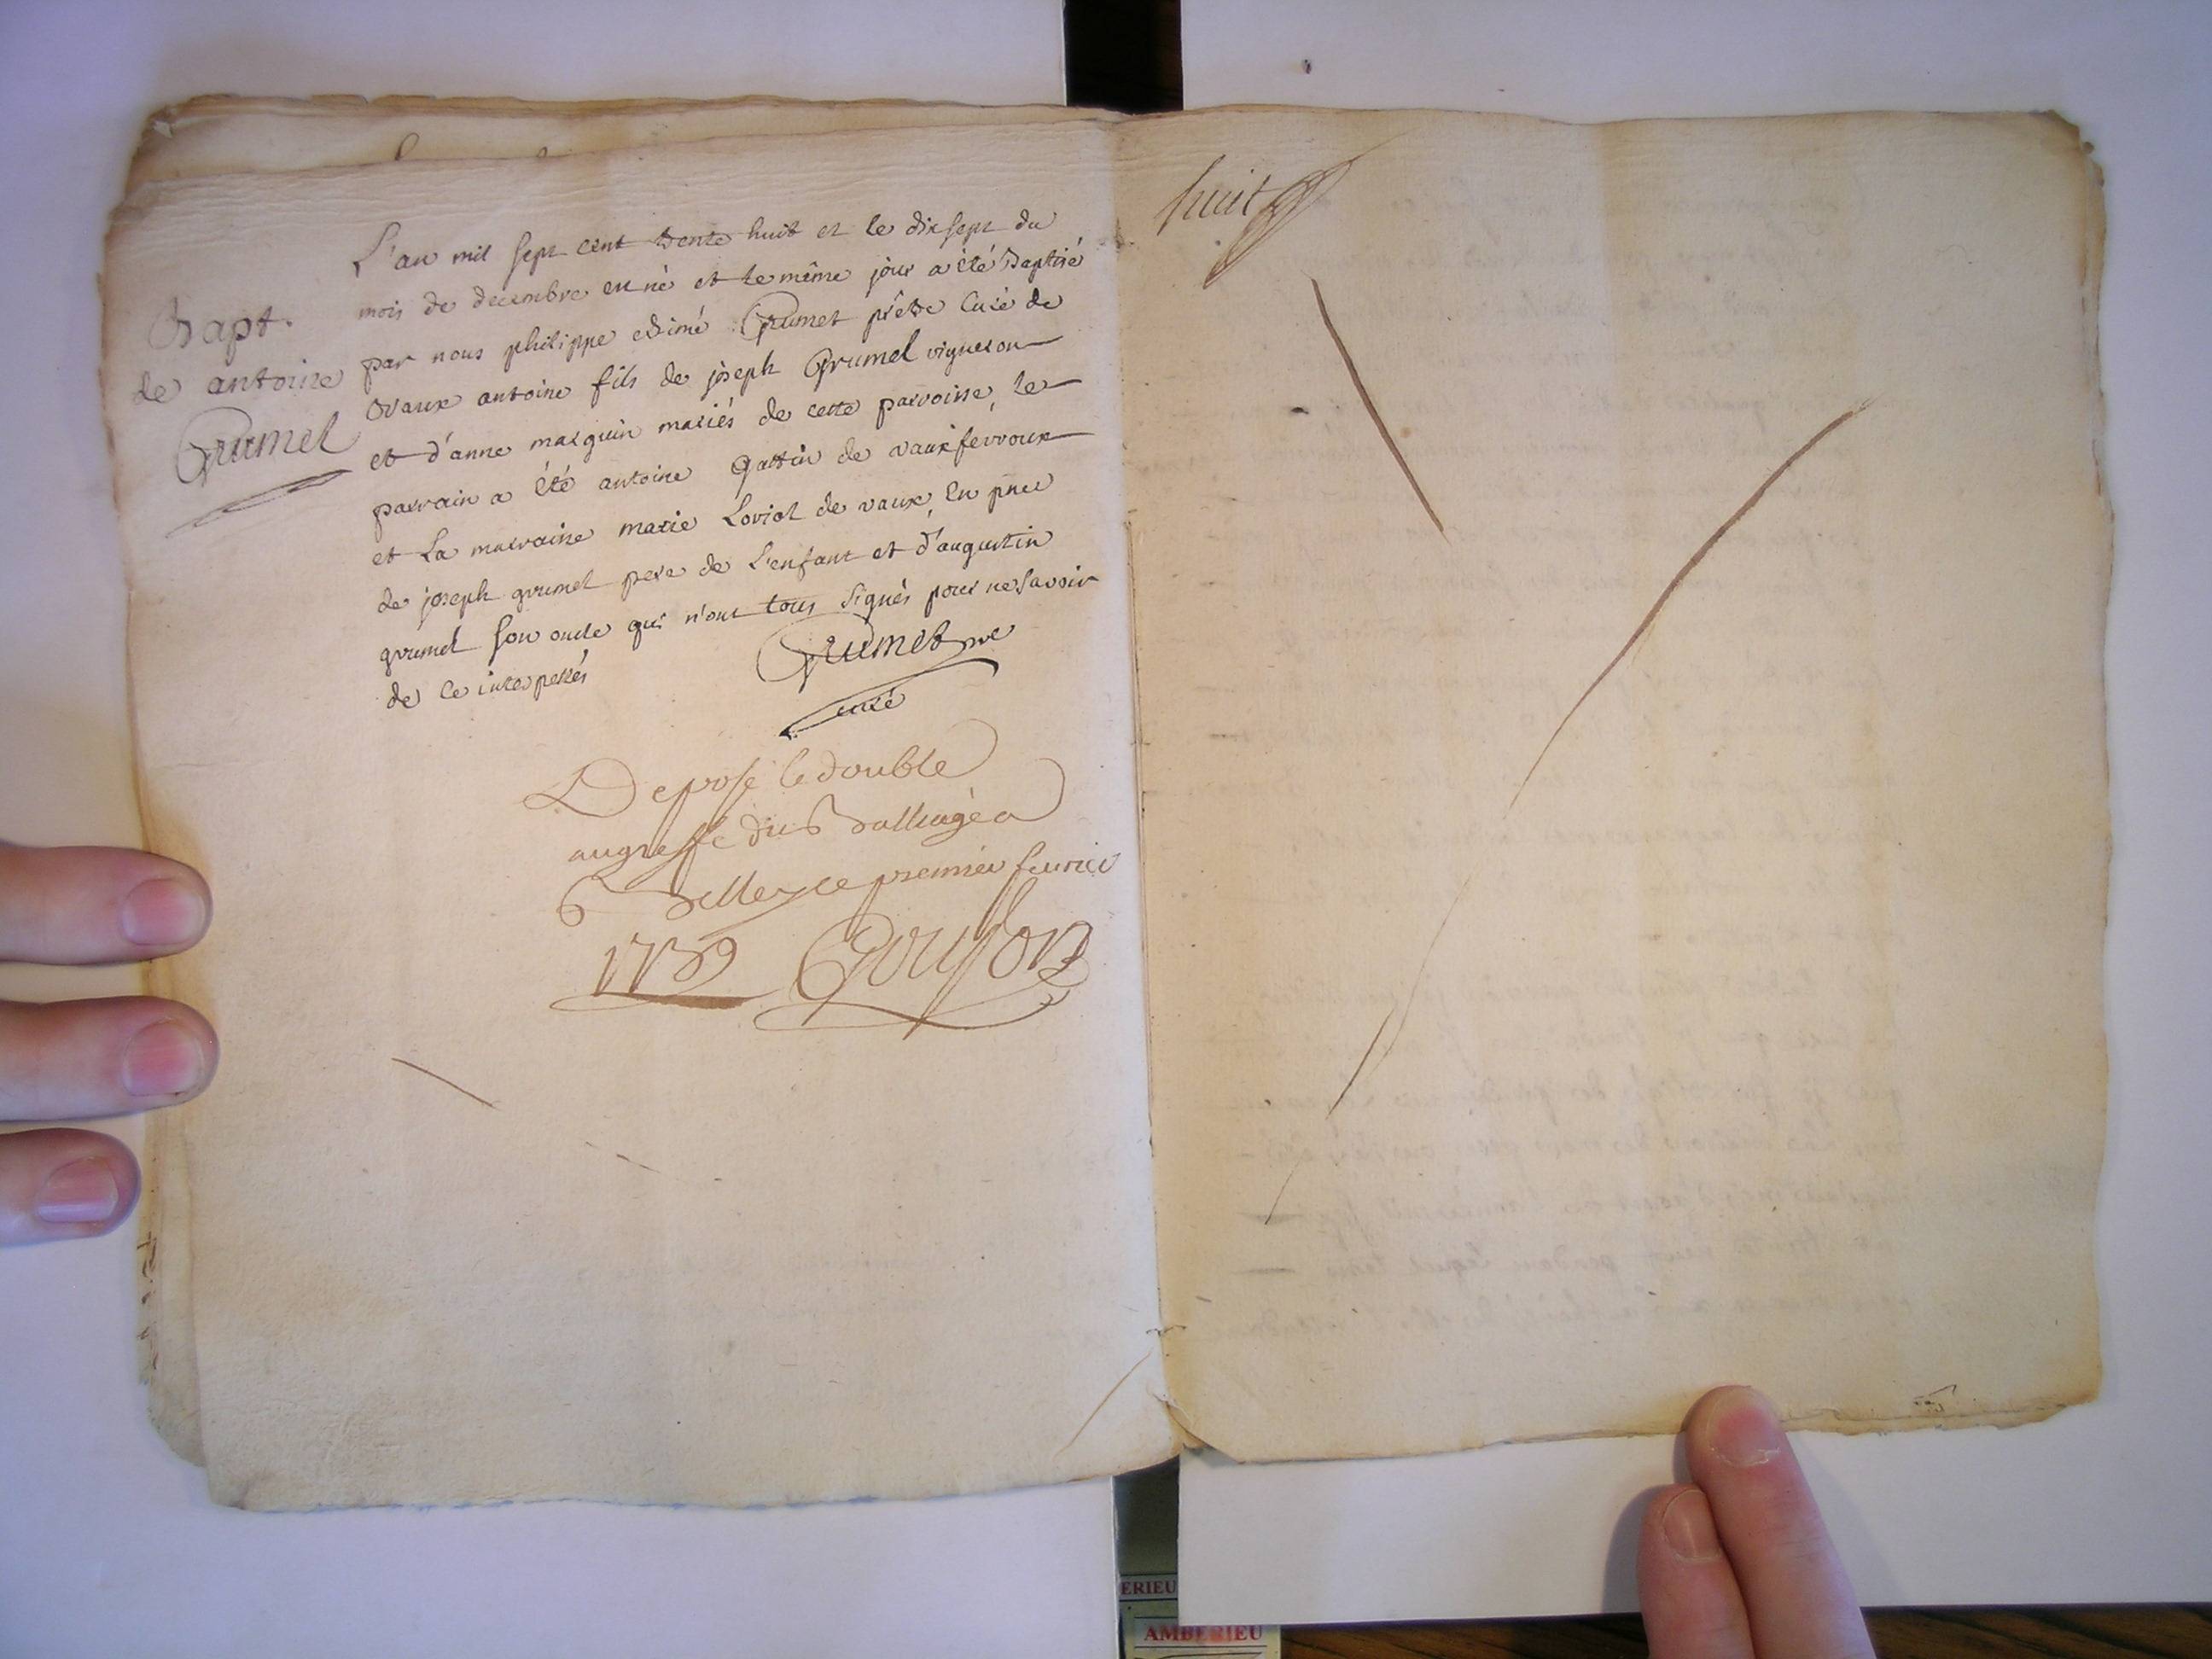 Bapt.
de antoine
Grumel
L'an mil sept cent trente huit et le dix sept du
mois de decembre est né et le même jour a été baptisé
par nous philippe edimé Grumet prêtre curé de
vaux antoine fils de joseph Grumel vigneron
et d'anne marguin mariés de cette parroisse, le
parrain a été antoine Gattin de vauxfevroux
et La marraine marie Loriol de vaux, En pnce
de joseph grumel pere de L'enfant et d'augustin
grumel son oncle qui n'ont tous signés pour ne savoir
de ce interpellés
Grumet ptre
curé
Deposé le double
au greffe du Balliage a
Belley ce premier feurier
1739
huit
ERIEU
AMBERIEU